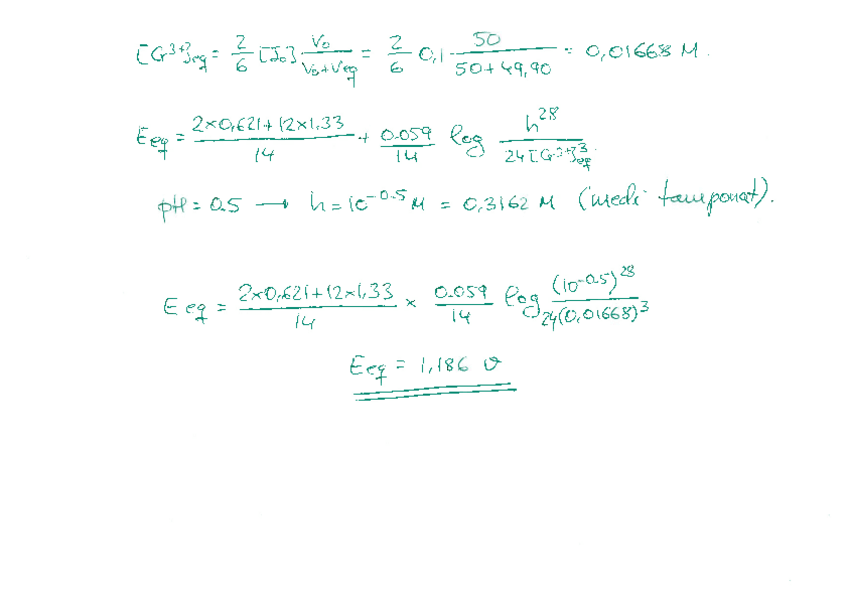 [Cr³⁺]eq = 2/6 [I₀] V₀/(V₀+Veq) = 2/6 0,1 50/(50+49,90) = 0,01668 M.
Eeq = (2×0,621+12×1,33)/14 + 0.059/14 log h²⁸/(24[Cr³⁺]³eq)
pH = 0.5 → h = 10⁻⁰·⁵ M = 0,3162 M (medi tamponat).
Eeq = (2×0,621+12×1,33)/14 × 0.059/14 log (10⁻⁰·⁵)²⁸/(24(0,01668)³)
Eeq = 1,186 v